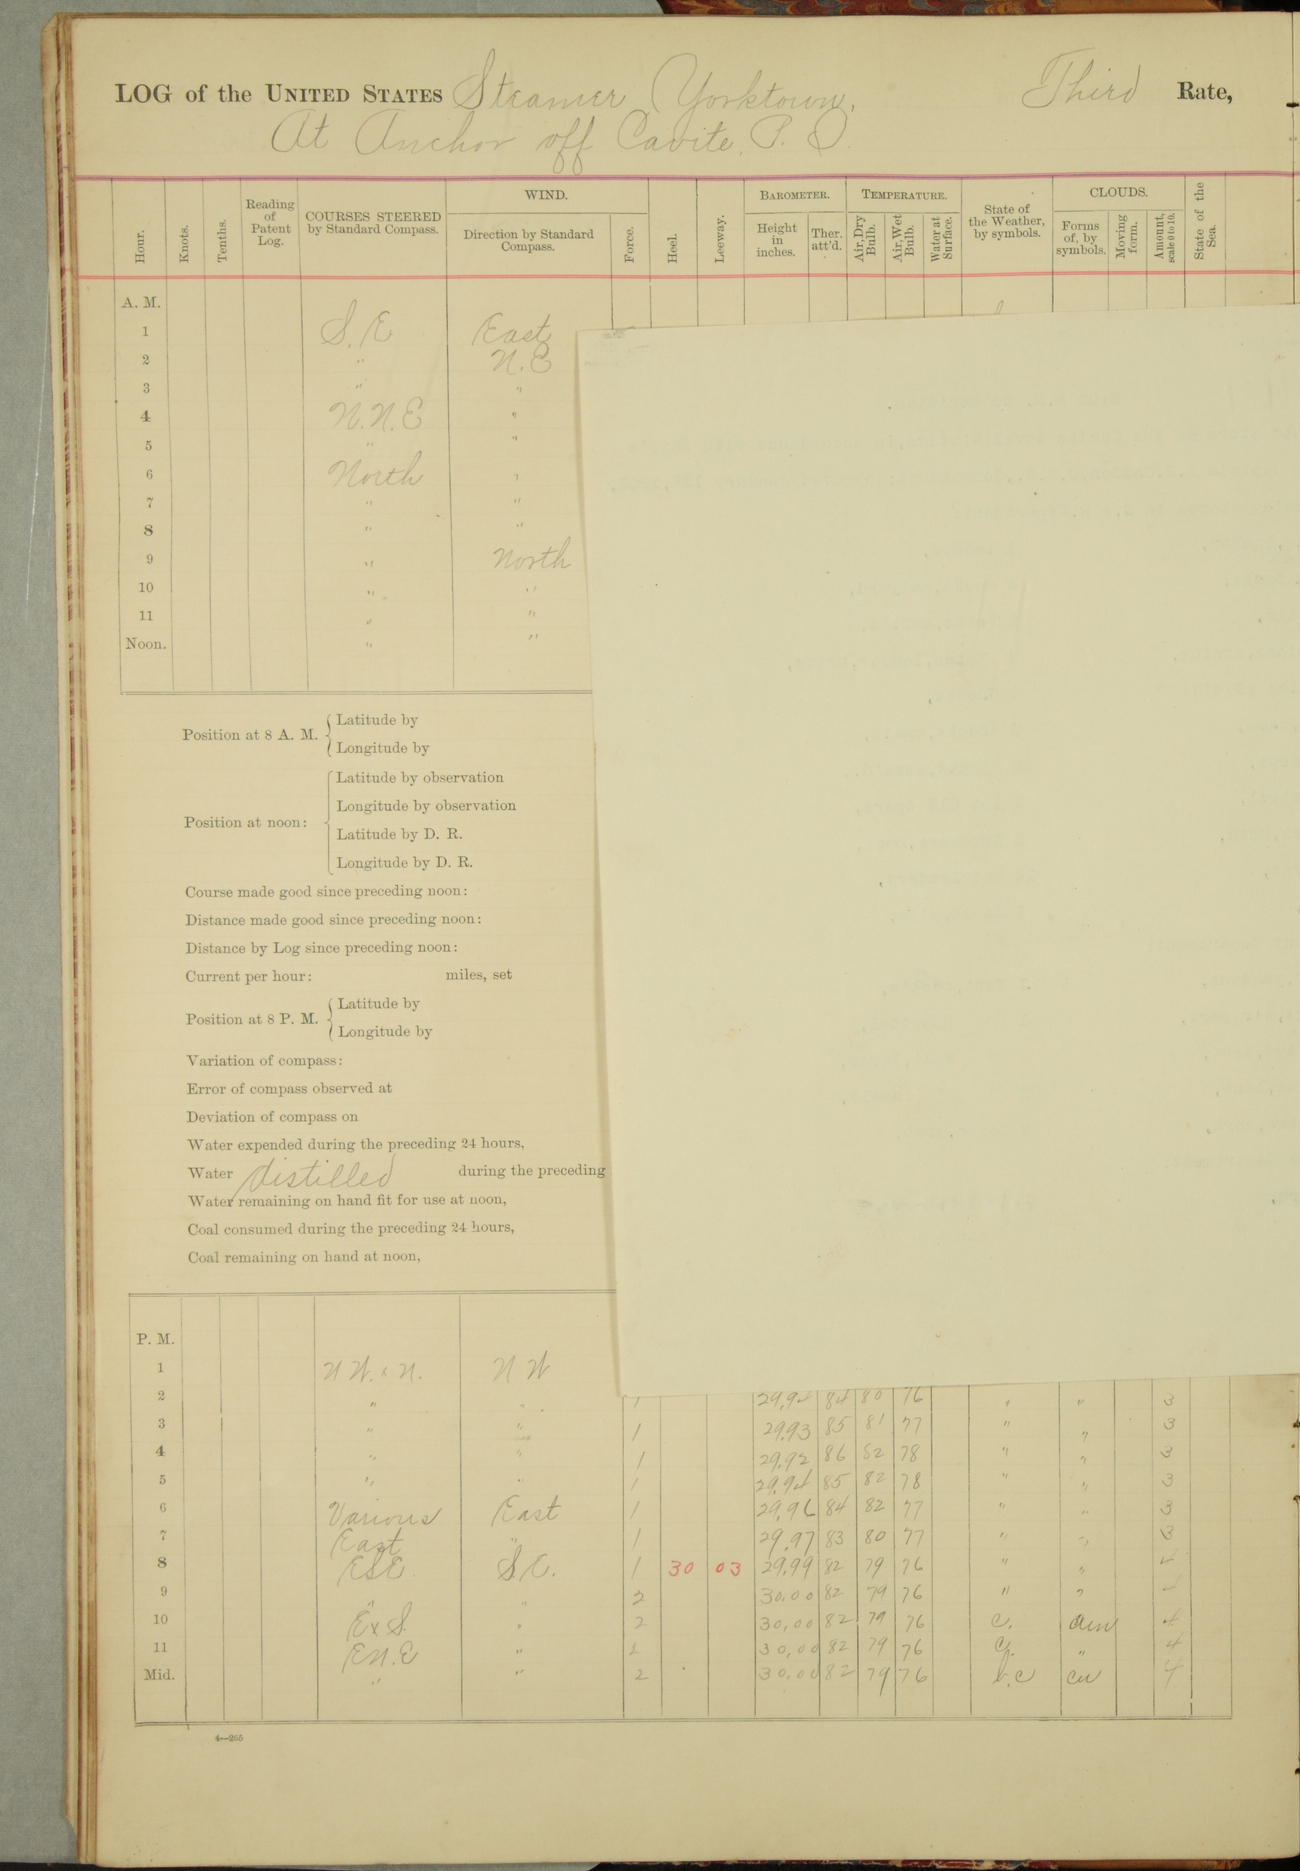 LOG of the UNITED STATES Steamer Yorktown, Third Rate,
At Anchor off Cavite, P. I.
Hour. Knots. Tenths. Reading of Patent Log. COURSES STEERED by Standard Compass. WIND. Direction by Standard Compass. Force. Heel. Leeway. BAROMETER. Height in inches. Ther. att'd. TEMPERATURE. Air, Dry Bulb. Air, Wet Bulb. Water at Surface. State of the Weather, by symbols. CLOUDS. Forms of, by symbols. Moving form. Amount, scale 0 to 10. State of the Sea.
A. M.
1 S. E East
2 " N. E
3 " "
4 N. N. E "
5 " "
6 North "
7 " "
8 " "
9 " North
10 " "
11 " "
Noon. " "
Position at 8 A. M. Latitude by
Longitude by
Position at noon: Latitude by observation
Longitude by observation
Latitude by D. R.
Longitude by D. R.
Course made good since preceding noon:
Distance made good since preceding noon:
Distance by Log since preceding noon:
Current per hour: miles, set
Position at 8 P. M. Latitude by
Longitude by
Variation of compass:
Error of compass observed at
Deviation of compass on
Water expended during the preceding 24 hours,
Water distilled during the preceding
Water remaining on hand fit for use at noon,
Coal consumed during the preceding 24 hours,
Coal remaining on hand at noon,
P. M.
1 N W. x N. N W
2 " " 1 84 80 76 " " 3
3 " " 1 29.93 85 81 77 " " 3
4 " " 1 29.92 86 82 78 " " 3
5 " " 1 29.94 85 82 78 " " 3
6 Various East 1 29.96 84 82 77 " " 3
7 East " 1 29.97 83 80 77 " " 3
8 ESE S. E. 1 30 03 29.99 82 79 76 " " 4
9 " " 2 30.00 82 79 76 " " 4
10 E x S. " 2 30.00 82 79 76 c. 4
11 E N. E " 2 30.00 82 79 76 c. " 4
Mid. " " 2 30.00 82 79 76 b. c cu 4
4—265